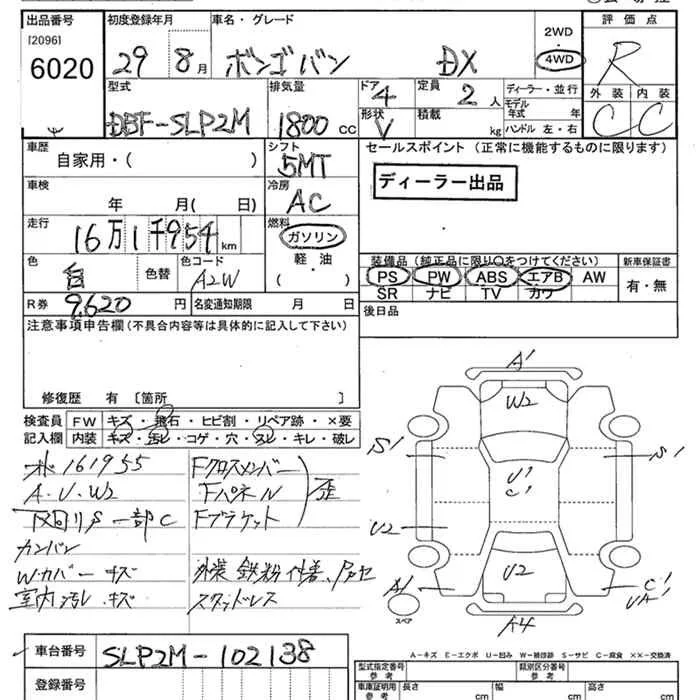 出品番号 初度登録年月 車名・グレード 評価点
[2096] 6020 29 8月 ボンゴバン DX 2WD 4WD R
型式 排気量 ドア 定員 ディーラー・並行 外装 内装
DBF-SLP2M 1800 cc 4 2人 モデル年式 年 C C
形状 V 積載 kg ハンドル 左・右
車歴 シフト セールスポイント (正常に機能するものに限ります)
自家用・( ) 5MT
ディーラー出品
車検 冷房
年 月( 日) AC
走行 燃料
16万1千954km ガソリン
軽油
( )
色 色替 色コード
白 A2W
装備品 (純正品に限り○をつけてください) 新車保証書
PS PW ABS エアB AW 有・無
SR ナビ TV カワ
R券 9,620円 名変通知期限 月 日
後日品
注意事項申告欄 (不具合内容等は具体的に記入して下さい)
修復歴 有 [箇所 ]
検査員 FW キズ・飛石・ヒビ割・リペア跡・×要
記入欄 内装 キズ・汚レ・コゲ・穴・スレ・キレ・破レ
メ161955
A.U.W2
下回りS一部C
カンバン
W.カバーキズ
室内汚レ.キズ
Fクロスメンバー
Fパネル
Fブラケット
歪
外装 鉄粉付着
スタッドレス
A1
W2
S1
S1
U1
C1
U2
U2
A1
C1
A4
スペア
A-キズ E-エクボ U-凹み W-補修跡 S-サビ C-腐食 ××-交換済
車台番号 SLP2M-102138
型式指定番号 参考 類別区分番号 参考
登録番号
車庫証明用 参考 長さ cm 幅 cm 高さ cm